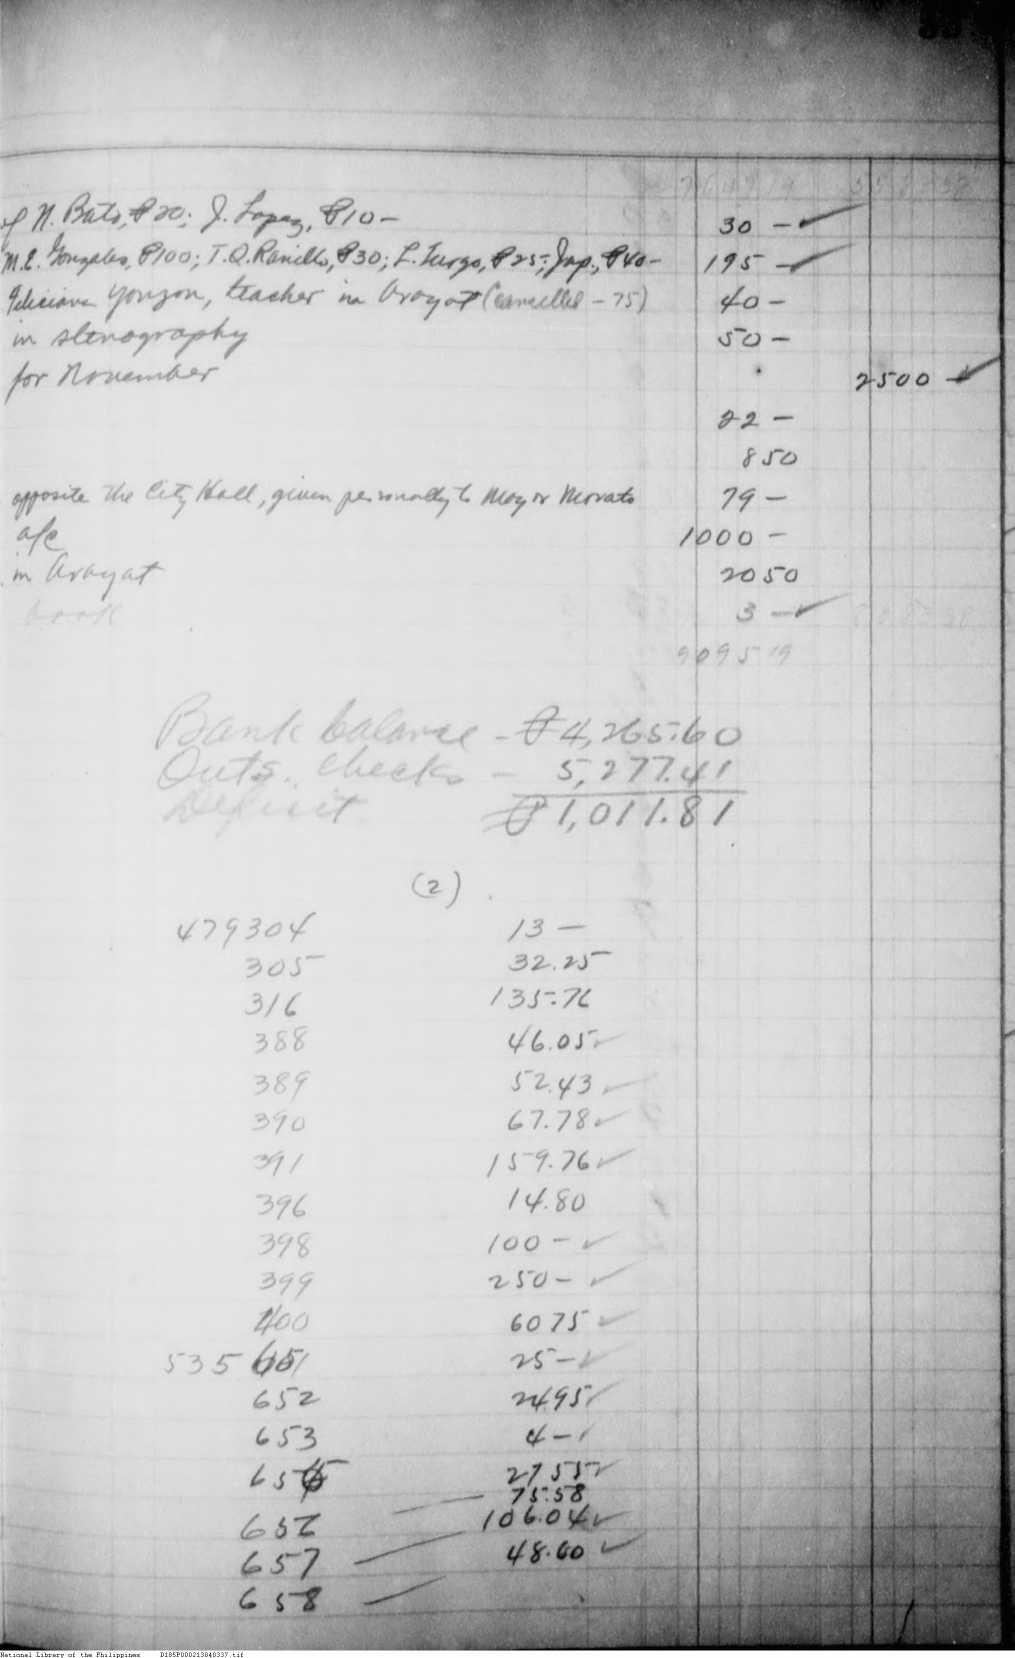 of N. Bato, ₱20; J. Lopez, ₱10— 30 —
M.E. Gonzales, ₱100; T.Q. Ranillo, ₱30; L. Turgo, ₱25; Jap., ₱40— 195 —
Feliciana Yonzon, teacher in Arayat (Cancelled — 75) 40 —
in stenography 50 —
for November 2500 —
22 —
850
opposite the City Hall, given personally to Mayor Morato 79 —
a/c 1000 —
in Arayat 2050
book 3 —
9095 79
Bank balance — ₱4,265.60
Outs. checks — 5,277.41
Deficit ₱1,011.81
(2)
479304 13 —
305 32.25
316 135.76
388 46.05
389 52.43
390 67.78
391 159.76
396 14.80
398 100 —
399 250 —
400 6075
535651 25 —
652 2495
653 4 —
655 2755
75.58
656 106.04
657 48.60
658
National Library of the Philippines D185P000213040337.tif